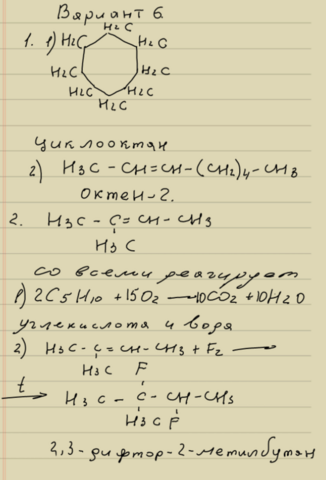 Вариант 6
1. 1)
H2C
H2C H2C
H2C H2C
H2C H2C
H2C
Циклооктан
2) H3C - CH=CH-(CH2)4-CH3
Октен-2.
2. H3C - C = CH - CH3
H3C
со всеми реагирует
1) 2C5H10 + 15O2 → 10CO2 + 10H2O
углекислота и вода
2) H3C - C = CH - CH3 + F2 →
H3C F
t → H3C - C - CH - CH3
H3C F
2,3-дифтор-2-метилбутан